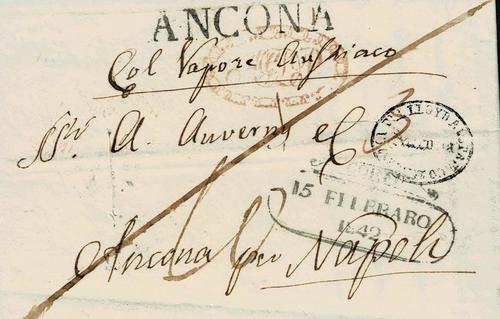 ANCONA
Col Vapore Austriaco
Srr A. Auverny e C
3
15 FEBBRARO
1842
Ancona per Napoli